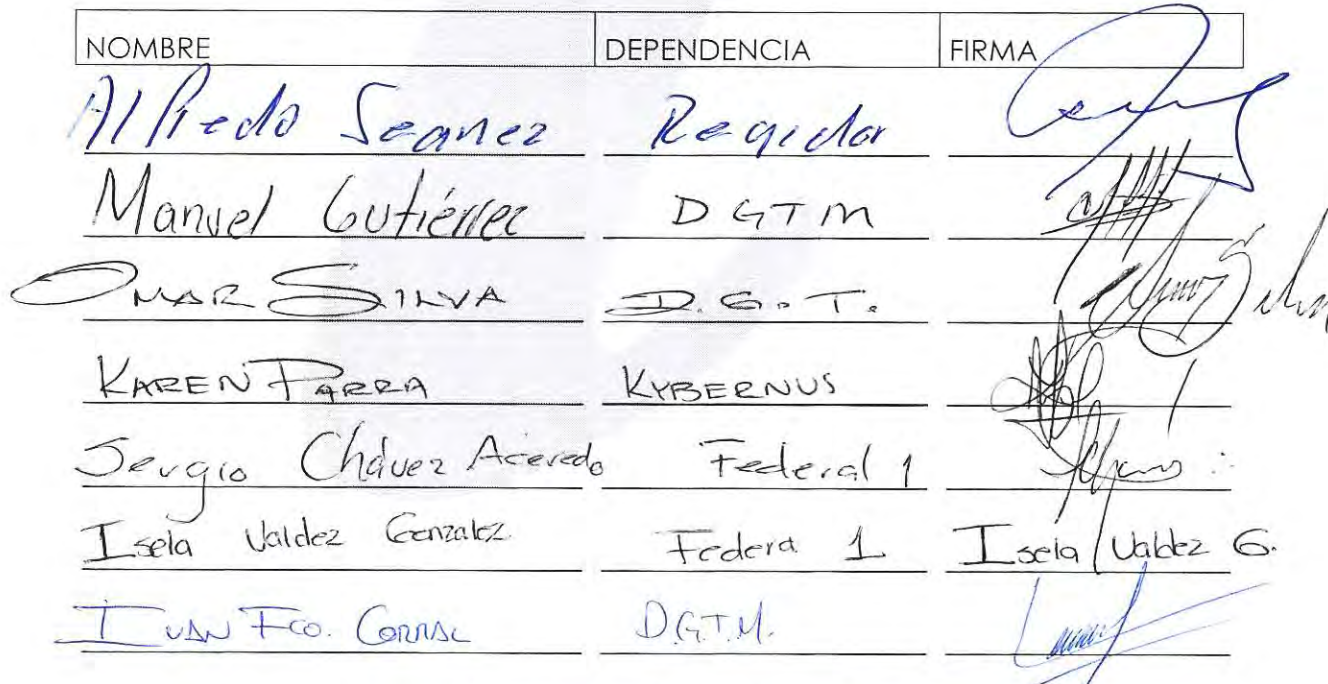 NOMBRE DEPENDENCIA FIRMA
Alfredo Seanez Regidor
Manuel Gutiérrez DGTM
OMAR SILVA D.G.T.
KAREN PARRA KYBERNUS
Sergio Chávez Acevedo Federal 1
Isela Valdez Gonzalez Federa 1 Isela Valdez G.
IVAN FCO. CORRAL D.G.T.M.